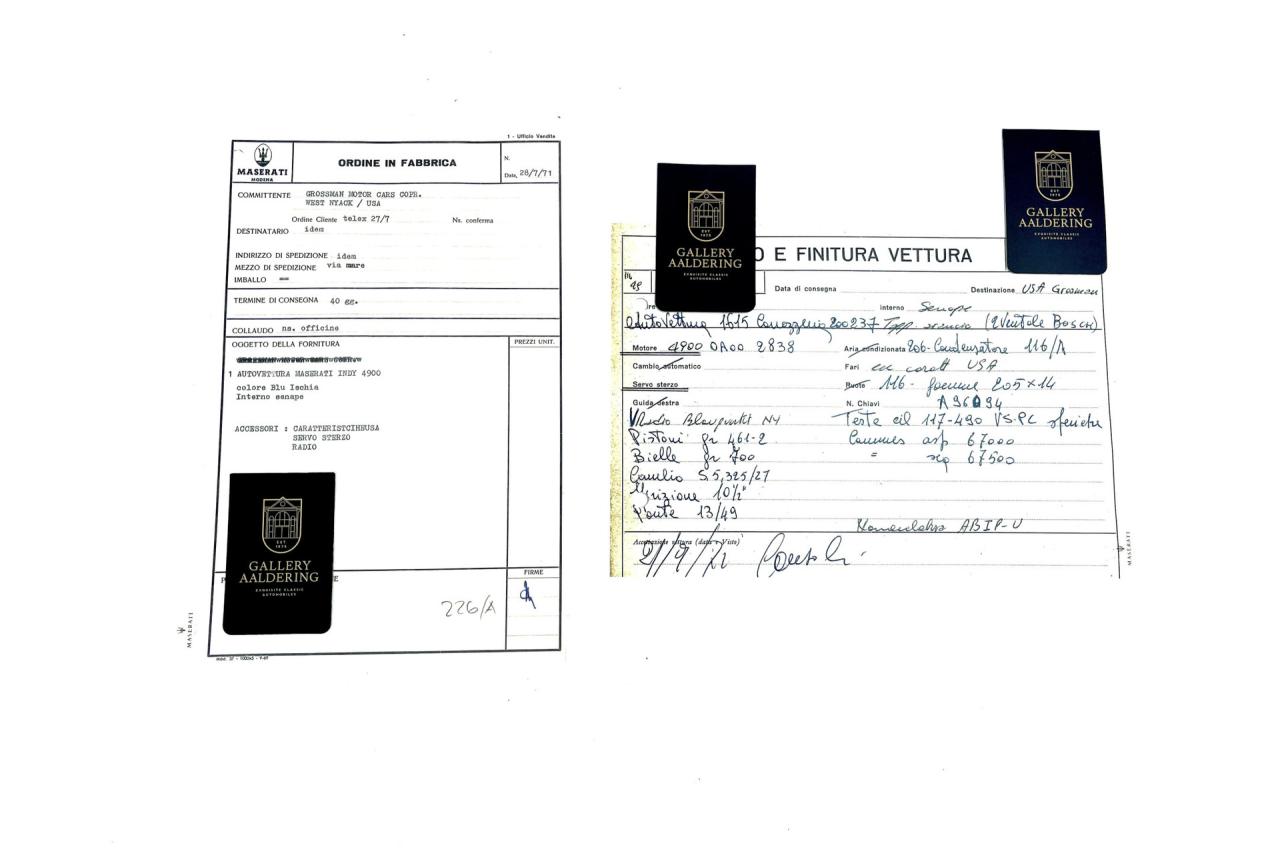 1 - Ufficio Vendite
MASERATI
MODENA
ORDINE IN FABBRICA
N.
Data, 28/7/71
COMMITTENTE GROSSMAN MOTOR CARS COPR.
WEST NYACK / USA
Ordine Cliente telex 27/7 Ns. conferma
DESTINATARIO idem
INDIRIZZO DI SPEDIZIONE idem
MEZZO DI SPEDIZIONE via mare
IMBALLO ==
TERMINE DI CONSEGNA 40 gg.
COLLAUDO ns. officine
OGGETTO DELLA FORNITURA PREZZI UNIT.
1 AUTOVETTURA MASERATI INDY 4900
colore Blu Ischia
Interno senape
ACCESSORI : CARATTERISTCIHEUSA
SERVO STERZO
RADIO
GALLERY
AALDERING
EXQUISITE CLASSIC
AUTOMOBILES
FIRME
226/A
MASERATI
O E FINITURA VETTURA
GALLERY
AALDERING
EXQUISITE CLASSIC
AUTOMOBILES
GALLERY
AALDERING
EXQUISITE CLASSIC
AUTOMOBILES
Data di consegna Destinazione USA Grosman
interno Senape
AutoVettura 1615 Carozzeria 200237 (2 Ventole Bosch)
Motore 4900 0A00 2838 Aria condizionata 206-Condensatore 116/A
Cambio automatico Fari USA
Servo sterzo Ruote 116- gomme 205x14
Guida destra N. Chiavi A96094
Radio Blaupunkt NY Teste cil 117-490 VS-PC sferiche
Pistoni gr 461-2 Cammes asp 67000
Bielle gr 700 = 67500
S5,325/27
10½"
Ponte 13/49
ABIP-U
MASERATI